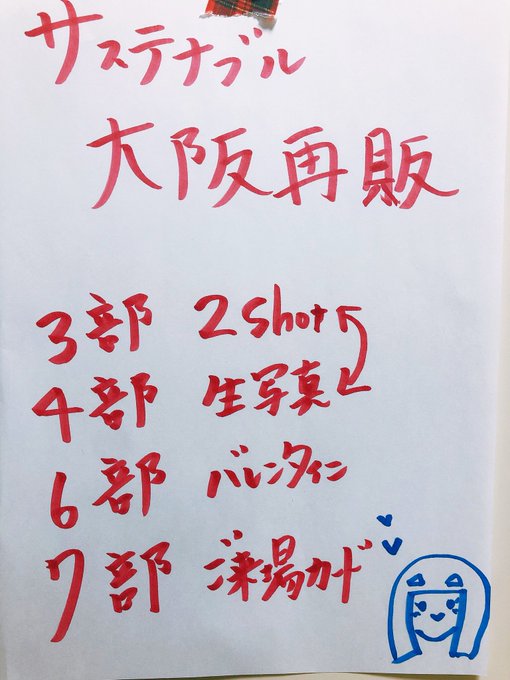 サステナブル
大阪再販
3部 2shot
4部 生写真
6部 バレンタイン
7部 ご来場カード